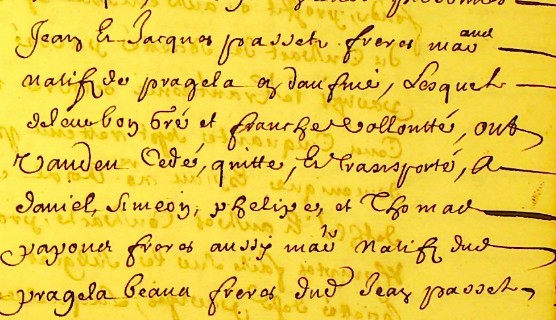 Jean Et Jacques passet freres mar.and
natifz de pragela en daufiné, Lesquelz
de leur bon Gré et franche Vollontté, ont
Vandeu Cedé, quitte, Et transporté, A
daniel, Simeon, phelipe, et Thomas
payour freres aussy mar.ts Natifz dud
pragela beaux freres dud Jean passet